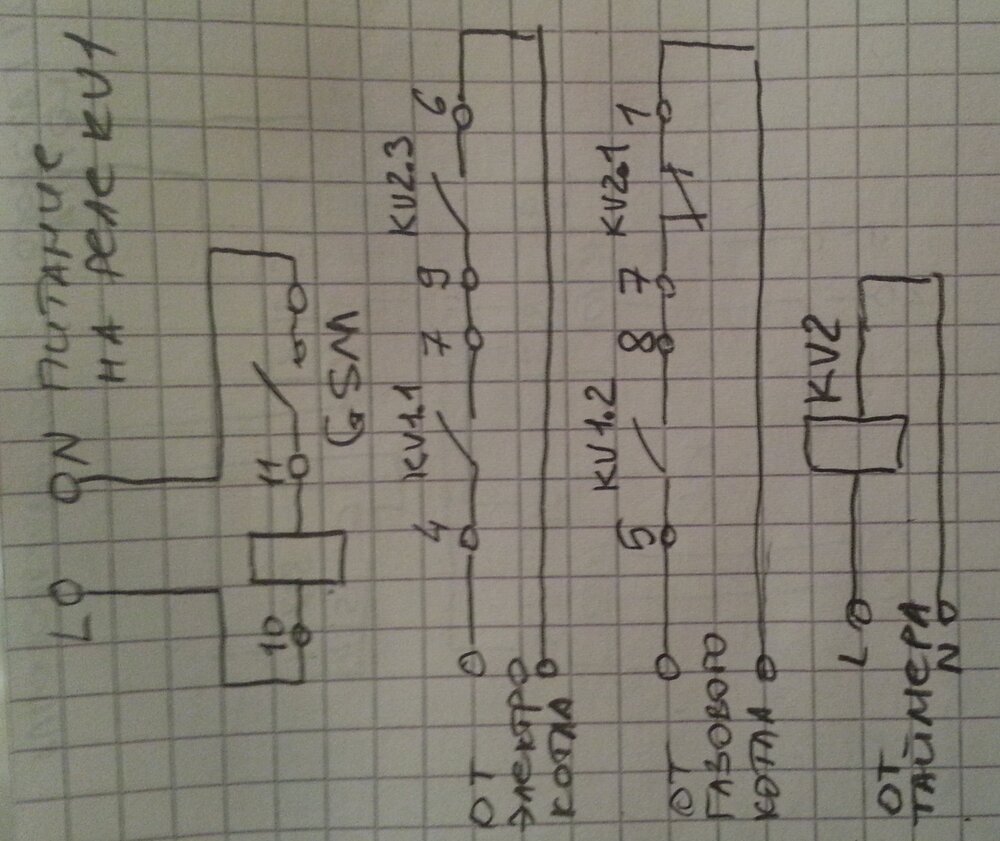 L N ПИТАНИЕ
НА РЕЛЕ KV1
10 11
GSM
KV1.1 KV2.3
4 7 9 6
ОТ
ЭЛЕКТРО
КОТЛА
KV1.2 KV2.1
5 8 7 1
ОТ
ГАЗОВОГО
КОТЛА
KV2
L
ОТ
ТАЙМЕРА
N